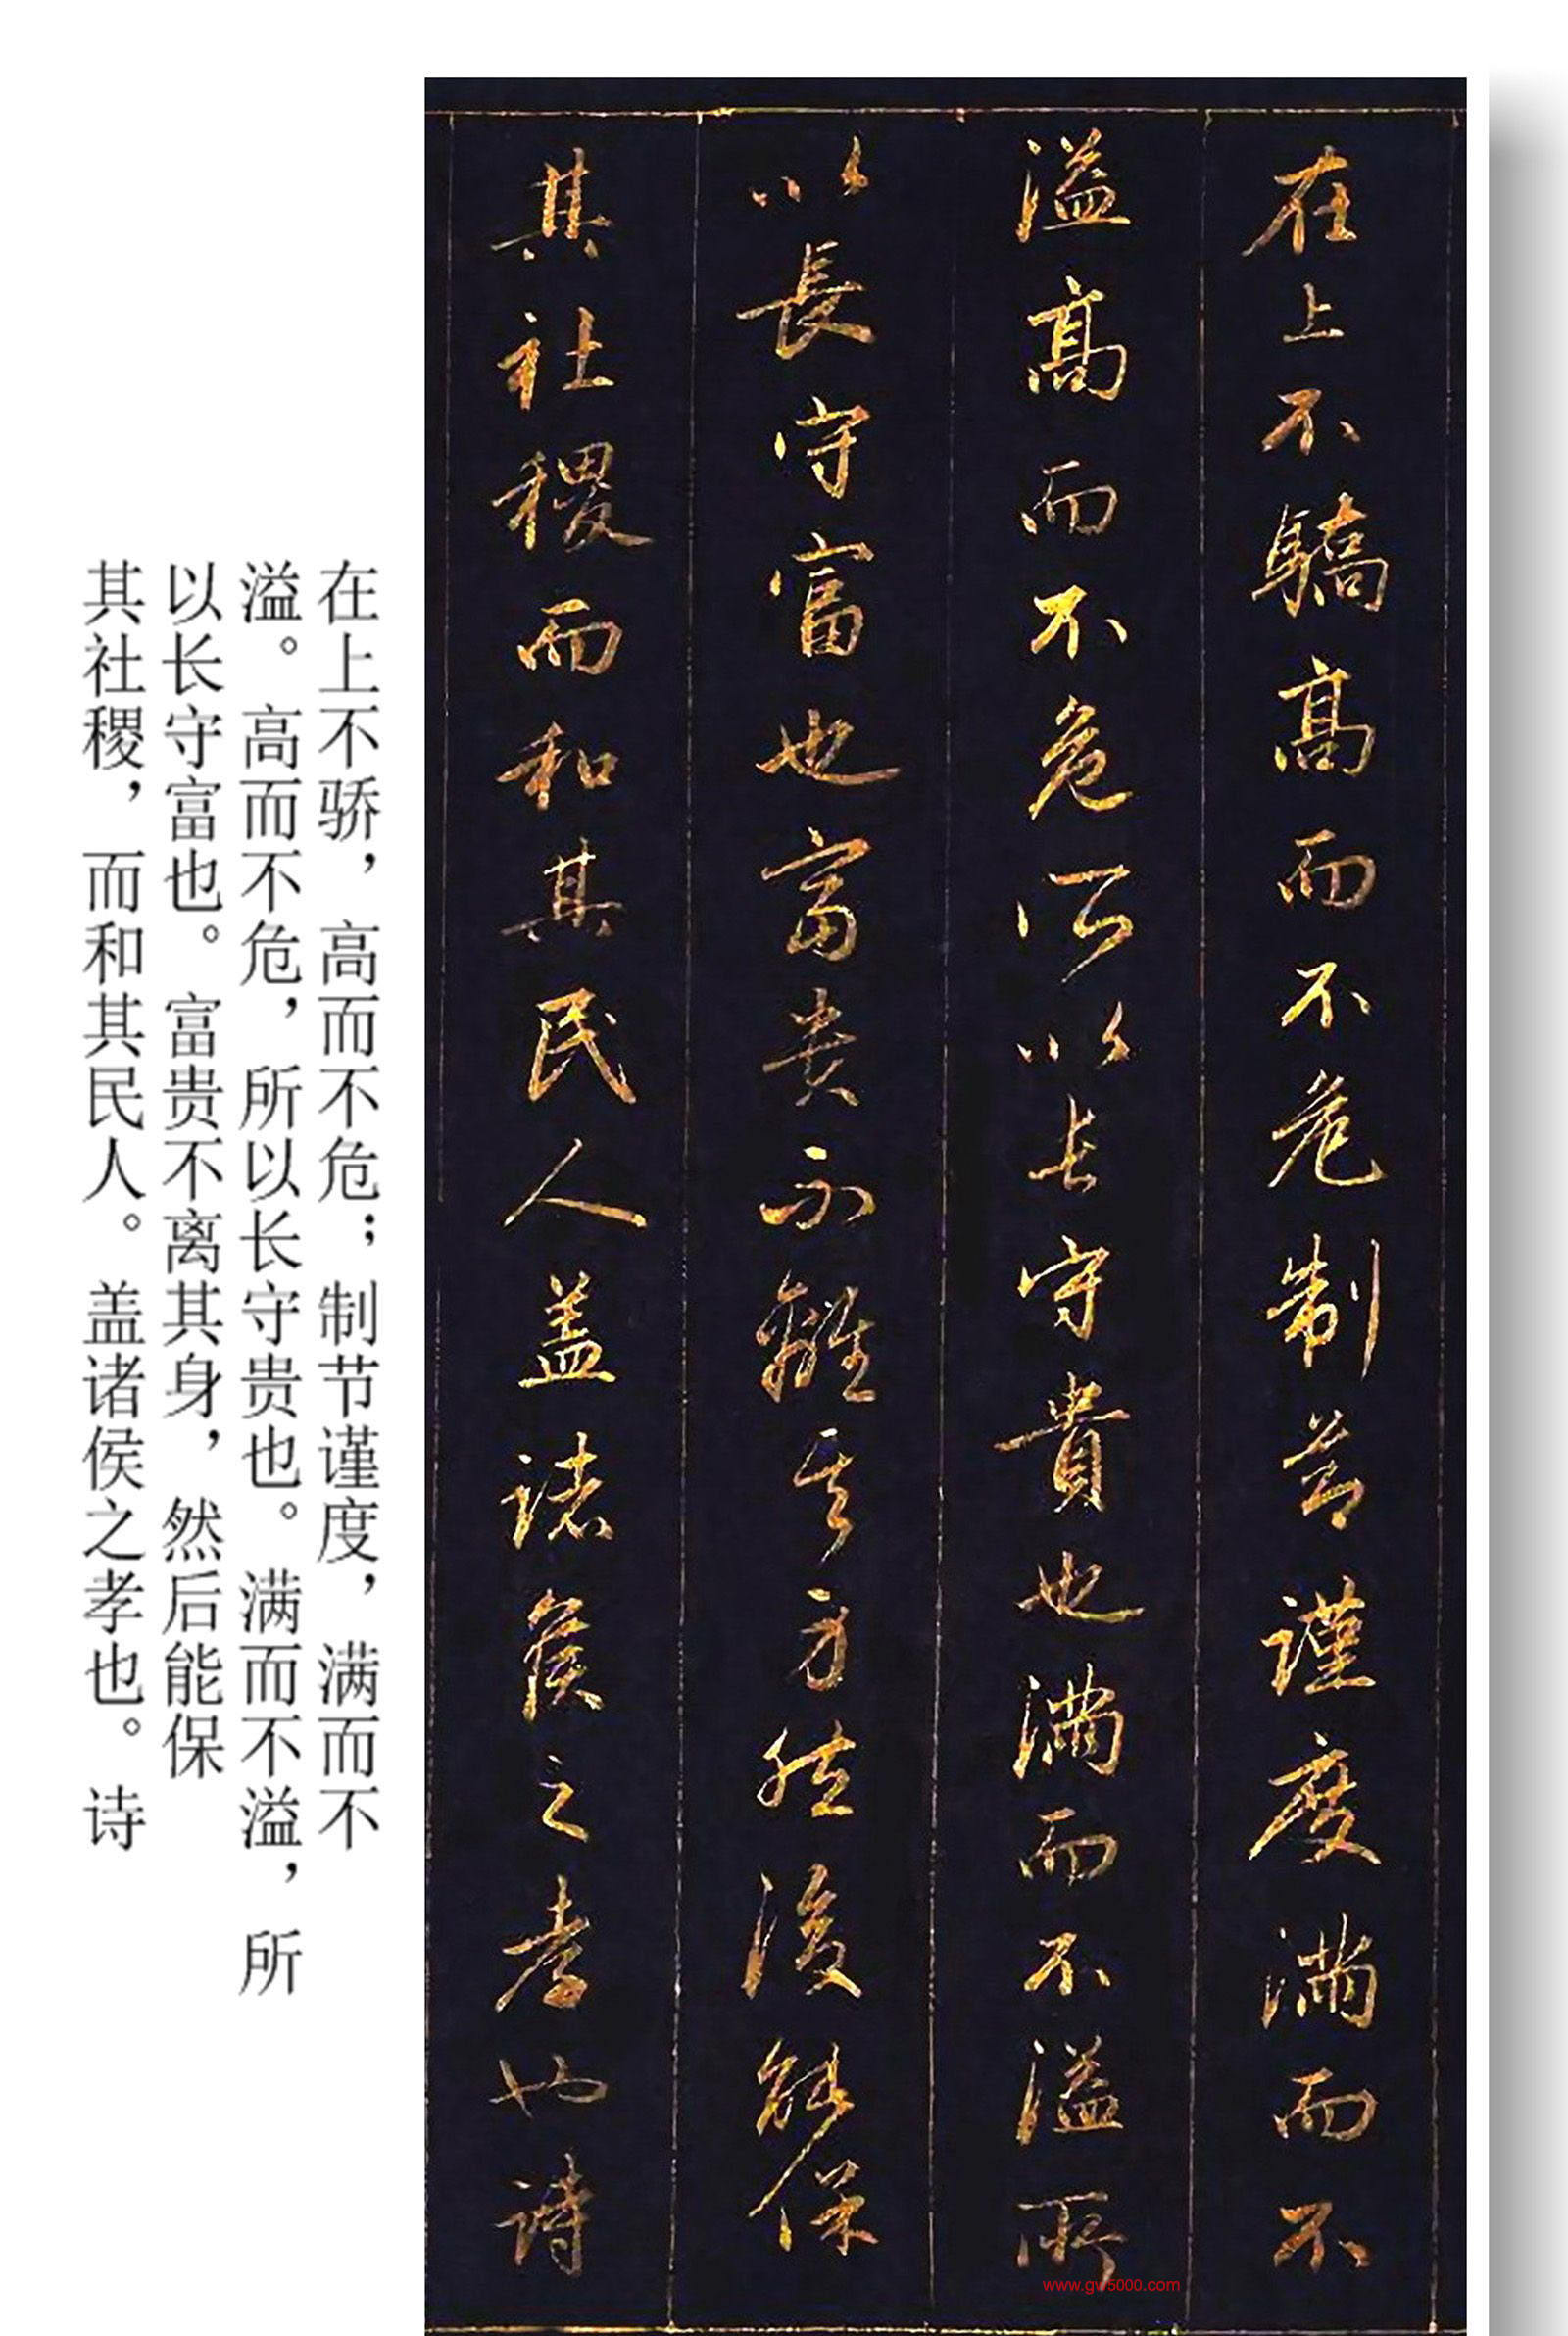 在上不驕高而不危制节謹度满而不
溢高而不危所以长守貴也满而不溢所
以長守富也富贵不離其身然後能保
其社稷而和其民人盖诸侯之孝也詩
在上不骄，高而不危；制节谨度，满而不
溢。高而不危，所以长守贵也。满而不溢，所
以长守富也。富贵不离其身，然后能保
其社稷，而和其民人。盖诸侯之孝也。诗
www.gw5000.com